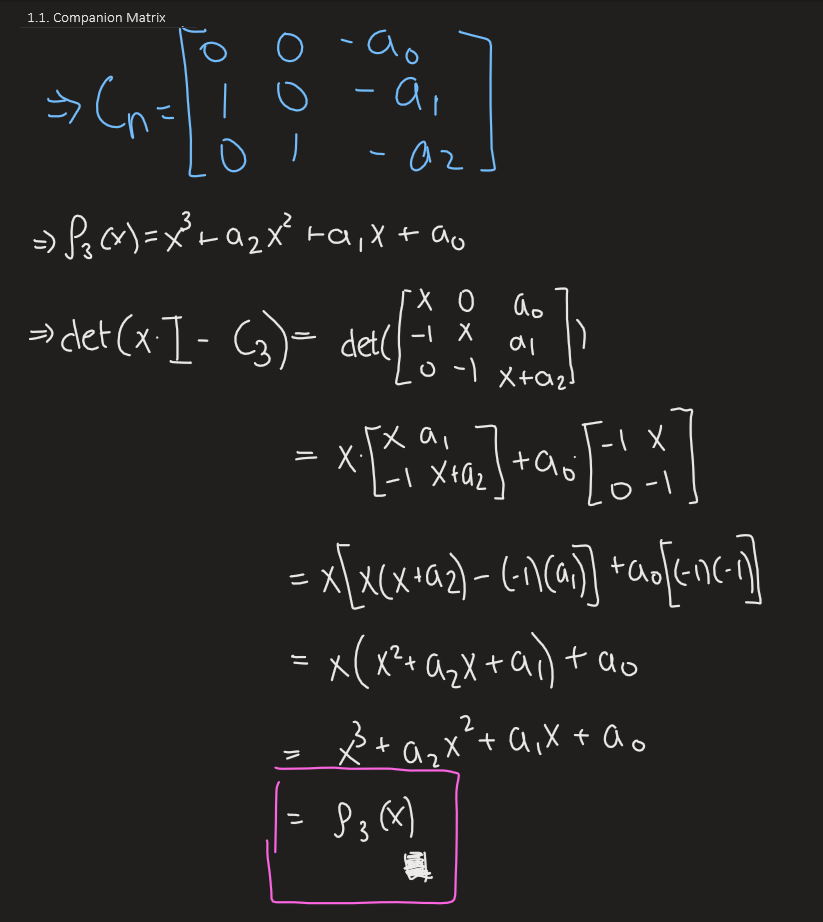 1.1. Companion Matrix
⇒ Cₙ = [0 0 -a₀
1 0 -a₁
0 1 -a₂]
⇒ P₃(x) = x³ + a₂x² + a₁x + a₀
⇒ det(x·I - C₃) = det([x 0 a₀
-1 x a₁
0 -1 x+a₂])
= x·[x a₁
-1 x+a₂] + a₀·[-1 x
0 -1]
= x[x(x+a₂) - (-1)(a₁)] + a₀[(-1)(-1)]
= x(x² + a₂x + a₁) + a₀
= x³ + a₂x² + a₁x + a₀
= P₃(x)